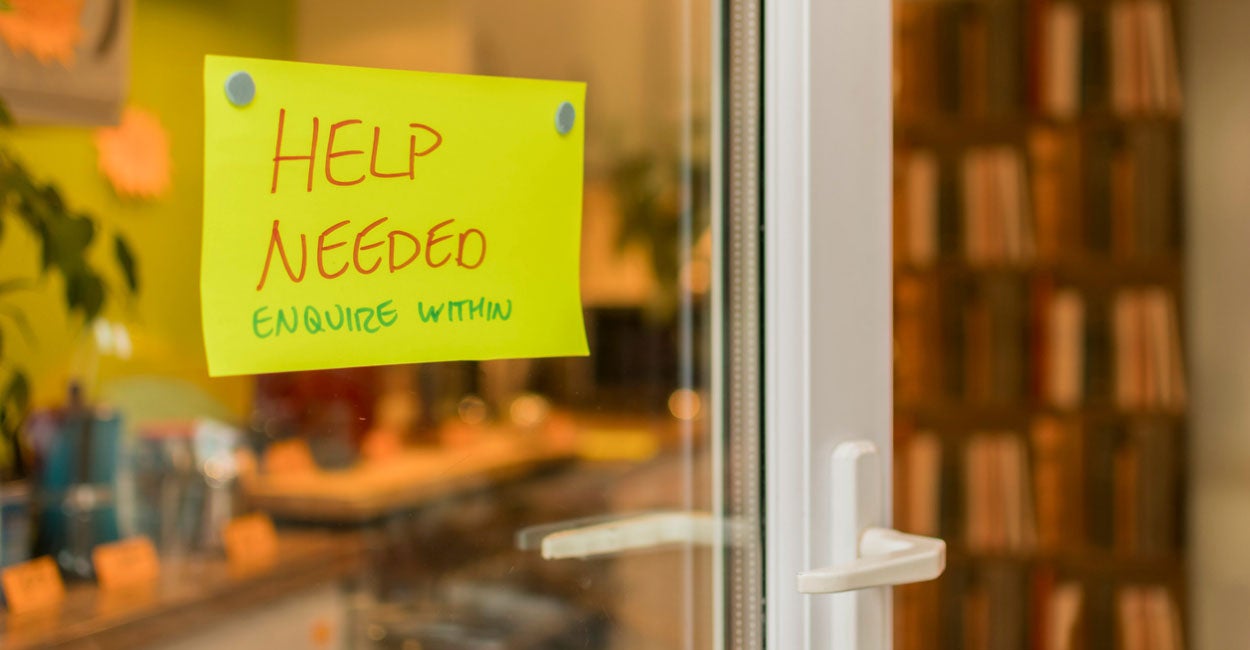 HELP
NEEDED
ENQUIRE WITHIN